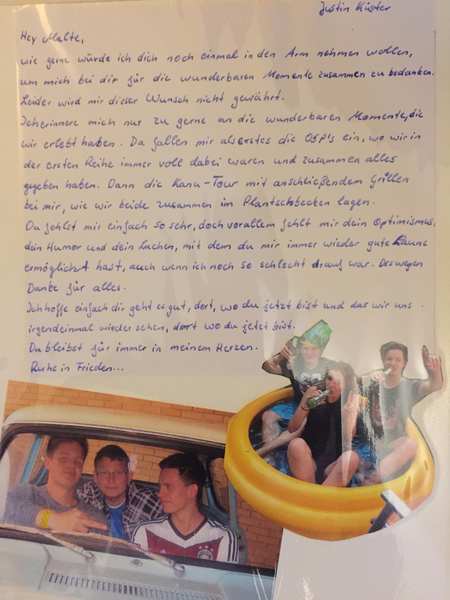 Justin Küster
Hey Malte,
wie gerne würde ich dich noch einmal in den Arm nehmen wollen,
um mich bei dir für die wunderbaren Momente zusammen zu bedanken.
Leider wird mir dieser Wunsch nicht gewährt.
Ich erinnere mich nur zu gerne an die wunderbaren Momente, die
wir erlebt haben. Da fallen mir als erstes die OSP's ein, wo wir in
der ersten Reihe immer voll dabei waren und zusammen alles
gegeben haben. Dann die Kanu-Tour mit anschließendem Grillen
bei mir, wie wir beide zusammen im Plantschbecken lagen.
Du fehlst mir einfach so sehr, doch vorallem fehlt mir dein Optimismus,
dein Humor und dein Lachen, mit dem du mir immer wieder gute Laune
ermöglichst hast, auch wenn ich noch so schlecht drauf war. Deswegen
Danke für alles.
Ich hoffe einfach dir geht es gut, dort, wo du jetzt bist und das wir uns
irgendeinmal wieder sehen, dort wo du jetzt bist.
Du bleibst für immer in meinem Herzen.
Ruhe in Frieden...